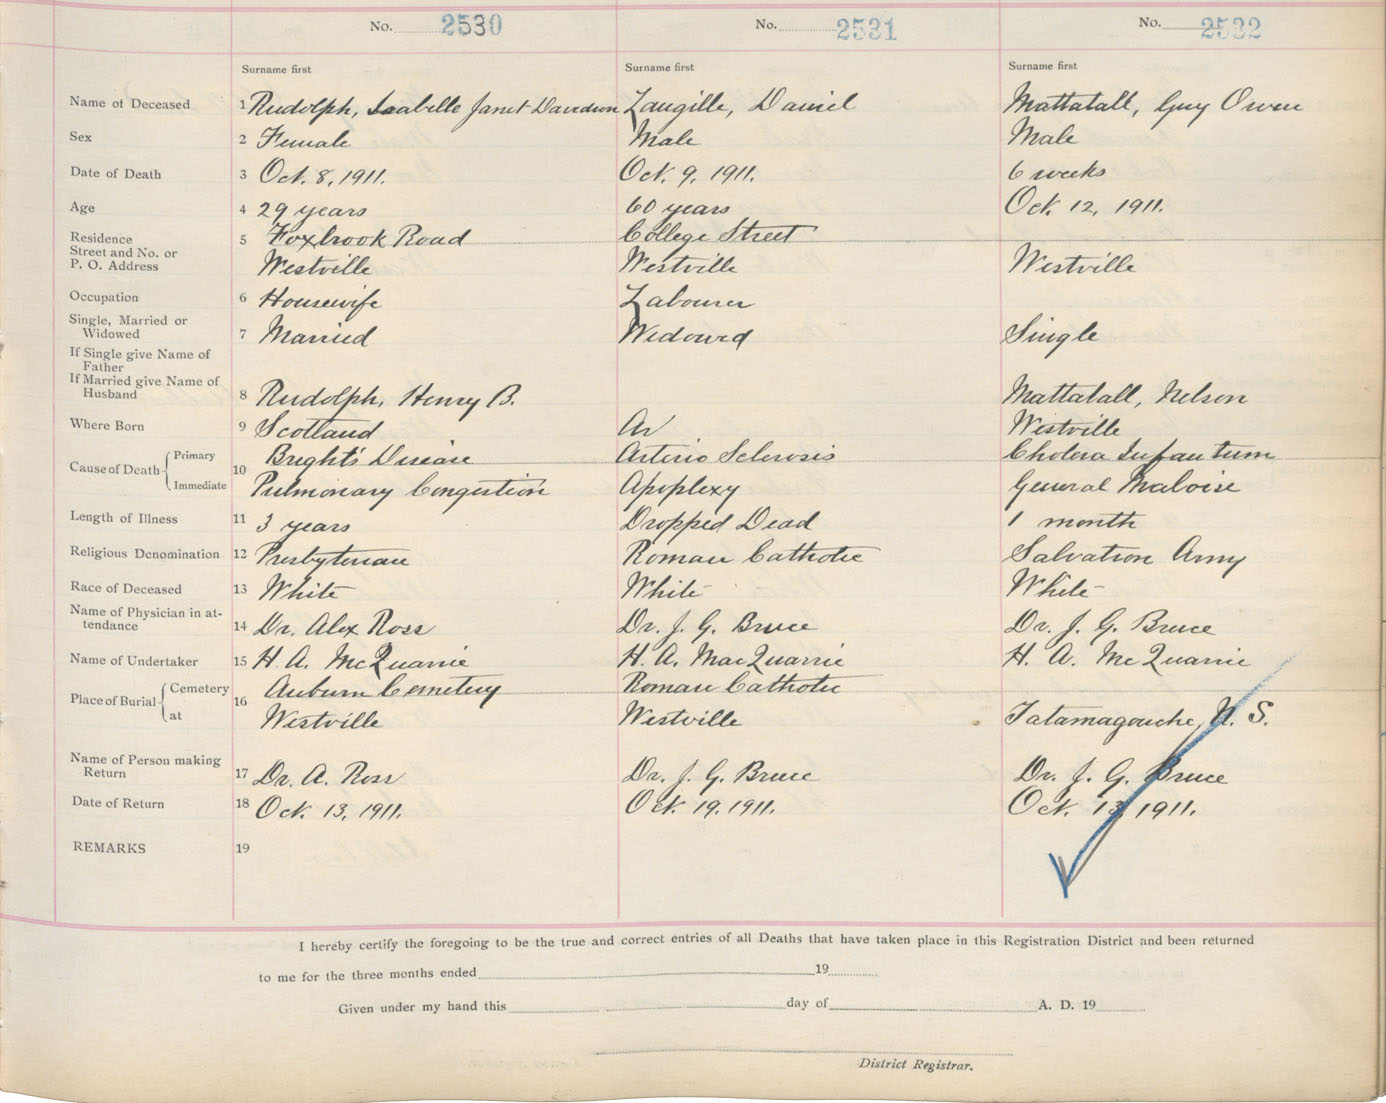 No. 2530 No. 2531 No. 2532
Surname first Surname first Surname first
Name of Deceased 1 Rudolph, Isabelle Janet Davidson Langille, Daniel Mattatall, Guy Owen
Sex 2 Female Male Male
Date of Death 3 Oct. 8, 1911. Oct. 9, 1911. 6 weeks
Age 4 29 years 60 years Oct. 12, 1911.
Residence 5 Foxbrook Road College Street
Street and No. or
P. O. Address Westville Westville Westville
Occupation 6 Housewife Labourer
Single, Married or
Widowed 7 Married Widowed Single
If Single give Name of
Father
If Married give Name of
Husband 8 Rudolph, Henry B. Mattatall, Nelson
Where Born 9 Scotland Westville
Cause of Death Primary 10 Bright's Disease Arterio Sclerosis Cholera Infantum
Immediate Pulmonary Congestion Apoplexy General Malaise
Length of Illness 11 3 years Dropped Dead 1 month
Religious Denomination 12 Presbyterian Roman Catholic Salvation Army
Race of Deceased 13 White White White
Name of Physician in at-
tendance 14 Dr. Alex Ross Dr. J. G. Bruce Dr. J. G. Bruce
Name of Undertaker 15 H. A. McQuarrie H. A. MacQuarrie H. A. McQuarrie
Place of Burial Cemetery 16 Auburn Cemetery Roman Catholic
at Westville Westville Tatamagouche, N. S.
Name of Person making
Return 17 Dr. A. Ross Dr. J. G. Bruce Dr. J. G. Bruce
Date of Return 18 Oct. 13, 1911. Oct. 19, 1911. Oct. 13, 1911.
REMARKS 19
I hereby certify the foregoing to be the true and correct entries of all Deaths that have taken place in this Registration District and been returned
to me for the three months ended 19
Given under my hand this day of A. D. 19
District Registrar.